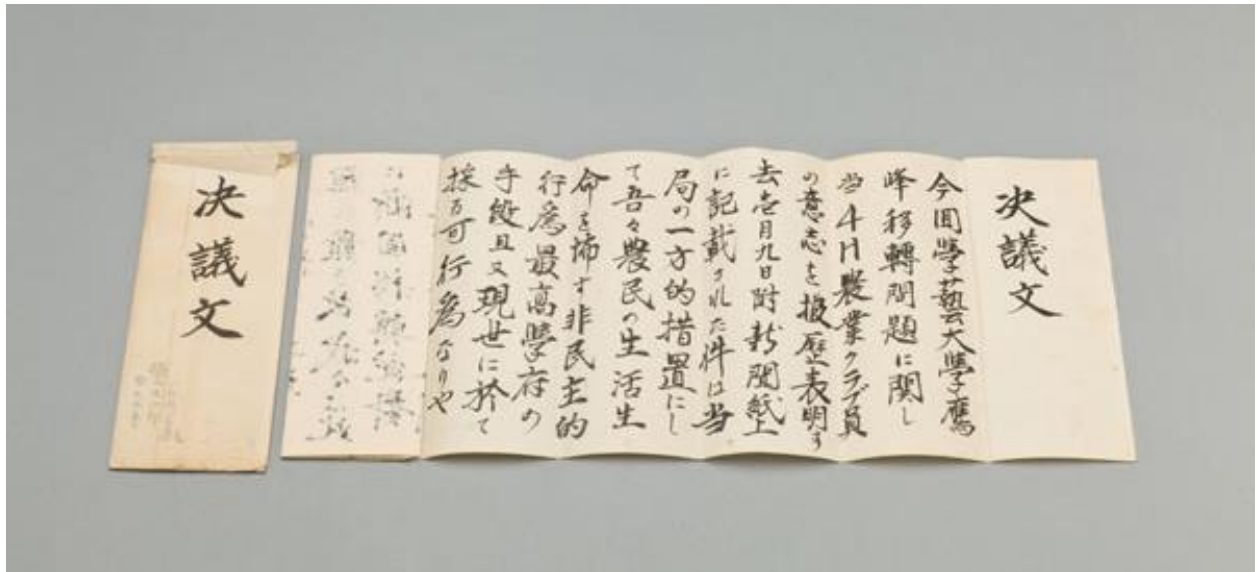 決議文
今回學藝大學鷹
峰移轉問題に関し
当4H農業クラブ員
の意志を披歴表明す
去壱月九日附新聞紙上
に記載された件は当
局の一方的措置にし
て吾々農民の生活生
命を怖す非民主的
行為最高學府の
手段且又現世に於て
採る可行為なりや
決議文